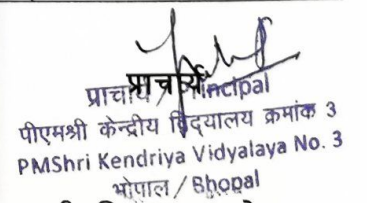 प्राचार्य
प्राचार्य / Principal
पीएमश्री केन्द्रीय विद्यालय क्रमांक 3
PMShri Kendriya Vidyalaya No. 3
भोपाल / Bhopal